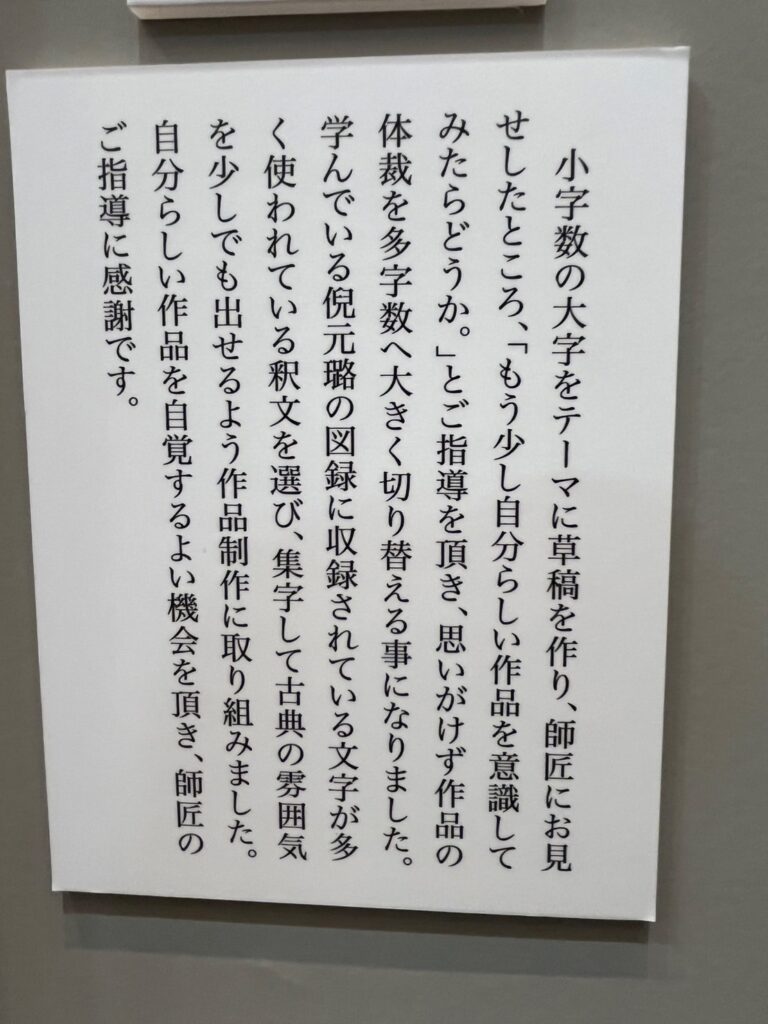 小字数の大字をテーマに草稿を作り、師匠にお見
せしたところ、「もう少し自分らしい作品を意識して
みたらどうか。」とご指導を頂き、思いがけず作品の
体裁を多字数へ大きく切り替える事になりました。
学んでいる倪元璐の図録に収録されている文字が多
く使われている釈文を選び、集字して古典の雰囲気
を少しでも出せるよう作品制作に取り組みました。
自分らしい作品を自覚するよい機会を頂き、師匠の
ご指導に感謝です。